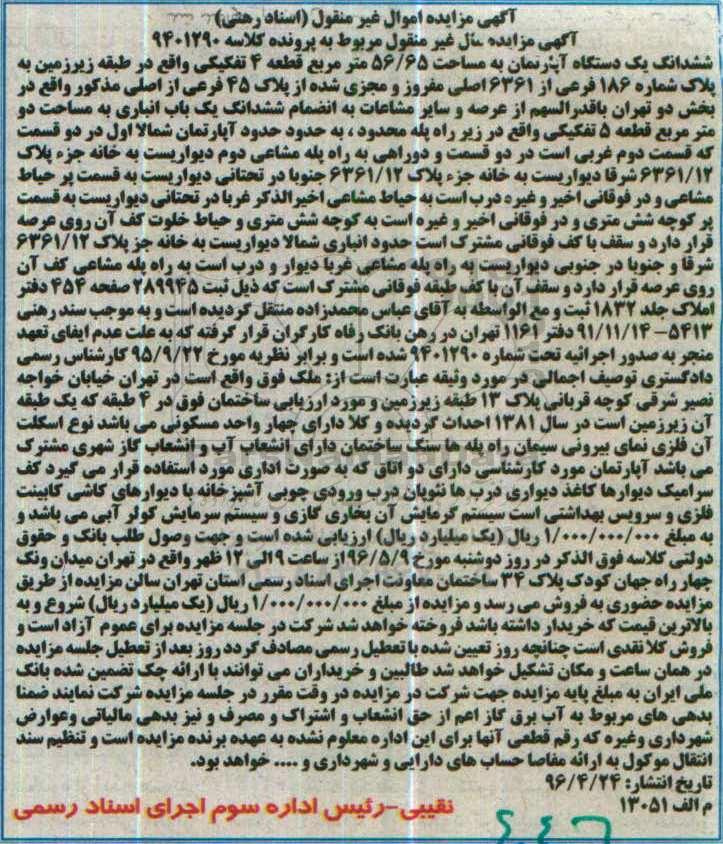 آگهی مزایده اموال غیر منقول (اسناد رهنی)
آگهی مزایده مال غیر منقول مربوط به پرونده کلاسه ۹۴۰۱۲۹۰
ششدانگ یک دستگاه آپارتمان به مساحت ۵۶/۶۵ متر مربع قطعه ۴ تفکیکی واقع در طبقه زیرزمین به
پلاک شماره ۱۸۶ فرعی از ۶۳۶۱ اصلی مفروز و مجزی شده از پلاک ۴۵ فرعی از اصلی مذکور واقع در
بخش دو تهران باقدرالسهم از عرصه و سایر مشاعات به انضمام ششدانگ یک باب انباری به مساحت دو
متر مربع قطعه ۵ تفکیکی واقع در زیر راه پله محدود، به حدود حدود آپارتمان شمالا اول در دو قسمت
که قسمت دوم غربی است در دو قسمت و دوراهی به راه پله مشاعی دوم دیواریست به خانه جزء پلاک
۶۳۶۱/۱۲ شرقا دیواریست به خانه جزء پلاک ۶۳۶۱/۱۲ جنوبا در تحتانی دیواریست به قسمت پر حیاط
مشاعی و در فوقانی اخیر و غیره درب است به حیاط مشاعی اخیرالذکر غربا در تحتانی دیواریست به قسمت
پر کوچه شش متری و در فوقانی اخیر و غیره است به کوچه شش متری و حیاط خلوت کف آن روی عرصه
قرار دارد و سقف با کف فوقانی مشترک است حدود انباری شمالا دیواریست به خانه جز پلاک ۶۳۶۱/۱۲
شرقا و جنوبا در جنوبی دیواریست به راه پله مشاعی غربا دیوار و درب است به راه پله مشاعی کف آن
روی عرصه قرار دارد و سقف آن با کف طبقه فوقانی مشترک است که ذیل ثبت ۲۸۹۹۴۵ صفحه ۴۵۴ دفتر
املاک جلد ۱۸۳۲ ثبت و مع الواسطه به آقای عباس محمدزاده منتقل گردیده است و به موجب سند رهنی
۵۴۱۳- ۹۱/۱۱/۱۴ دفتر ۱۱۶۱ تهران در رهن بانک رفاه کارگران قرار گرفته که به علت عدم ایفای تعهد
منجر به صدور اجرائیه تحت شماره ۹۴۰۱۲۹۰ شده است و برابر نظریه مورخ ۹۵/۹/۲۲ کارشناس رسمی
دادگستری توصیف اجمالی در مورد وثیقه عبارت است از: ملک فوق واقع است در تهران خیابان خواجه
نصیر شرقی کوچه قربانی پلاک ۱۳ طبقه زیرزمین و مورد ارزیابی ساختمان فوق در ۴ طبقه که یک طبقه
آن زیرزمین است در سال ۱۳۸۱ احداث گردیده و کلا دارای چهار واحد مسکونی می باشد نوع اسکلت
آن فلزی نمای بیرونی سیمان راه پله ها سنگ ساختمان دارای انشعاب آب و انشعاب گاز شهری مشترک
می باشد آپارتمان مورد کارشناسی دارای دو اتاق که به صورت اداری مورد استفاده قرار می گیرد کف
سرامیک دیوارها کاغذ دیواری درب ها نئوپان درب ورودی چوبی آشپزخانه با دیوارهای کاشی کابینت
فلزی و سرویس بهداشتی است سیستم گرمایش آن بخاری گازی و سیستم سرمایش کولر آبی می باشد و
به مبلغ ۱/۰۰۰/۰۰۰/۰۰۰ ریال (یک میلیارد ریال) ارزیابی شده است و جهت وصول طلب بانک و حقوق
دولتی کلاسه فوق الذکر در روز دوشنبه مورخ ۹۶/۵/۹ از ساعت ۹ الی ۱۲ ظهر واقع در تهران میدان ونک
چهار راه جهان کودک پلاک ۳۴ ساختمان معاونت اجرای اسناد رسمی استان تهران سالن مزایده از طریق
مزایده حضوری به فروش می رسد و مزایده از مبلغ ۱/۰۰۰/۰۰۰/۰۰۰ ریال (یک میلیارد ریال) شروع و به
بالاترین قیمت که خریدار داشته باشد فروخته خواهد شد شرکت در جلسه مزایده برای عموم آزاد است و
فروش کلا نقدی است چنانچه روز تعیین شده با تعطیل رسمی مصادف گردد روز بعد از تعطیل جلسه مزایده
در همان ساعت و مکان تشکیل خواهد شد طالبین و خریداران می توانند با ارائه چک تضمین شده بانک
ملی ایران به مبلغ پایه مزایده جهت شرکت در مزایده در وقت مقرر در جلسه مزایده شرکت نمایند ضمنا
بدهی های مربوط به آب برق گاز اعم از حق انشعاب و اشتراک و مصرف و نیز بدهی مالیاتی وعوارض
شهرداری وغیره که رقم قطعی آنها برای این اداره معلوم نشده به عهده برنده مزایده است و تنظیم سند
انتقال موکول به ارائه مفاصا حساب های دارایی و شهرداری و .... خواهد بود.
تاریخ انتشار: ۹۶/۴/۲۴
م الف ۱۳۰۵۱
نقیبی-رئیس اداره سوم اجرای اسناد رسمی